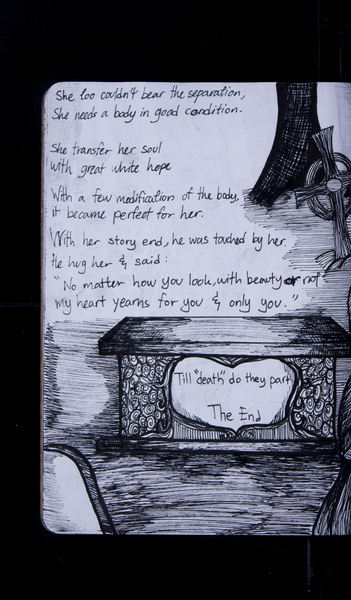 She too couldn't bear the separation,
She needs a body in good condition.
She transfer her soul
with great white hope
With a few modification of the body,
it became perfect for her.
With her story end, he was touched by her.
He hug her & said:
"No matter how you look, with beauty or not
my heart yearns for you & only you."
Till "death" do they part
The End